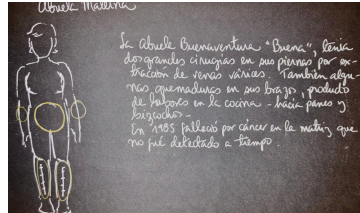 Abuela Materna
La abuela Buenaventura "Buena", tenía
dos grandes cirugías en sus piernas por ex-
tracción de venas várices. También algu-
nas quemaduras en sus brazos, producto
de labores en la cocina - hacía panes y
bizcochos -
En 1985 falleció por cáncer en la matriz que
no fué detectado a tiempo.